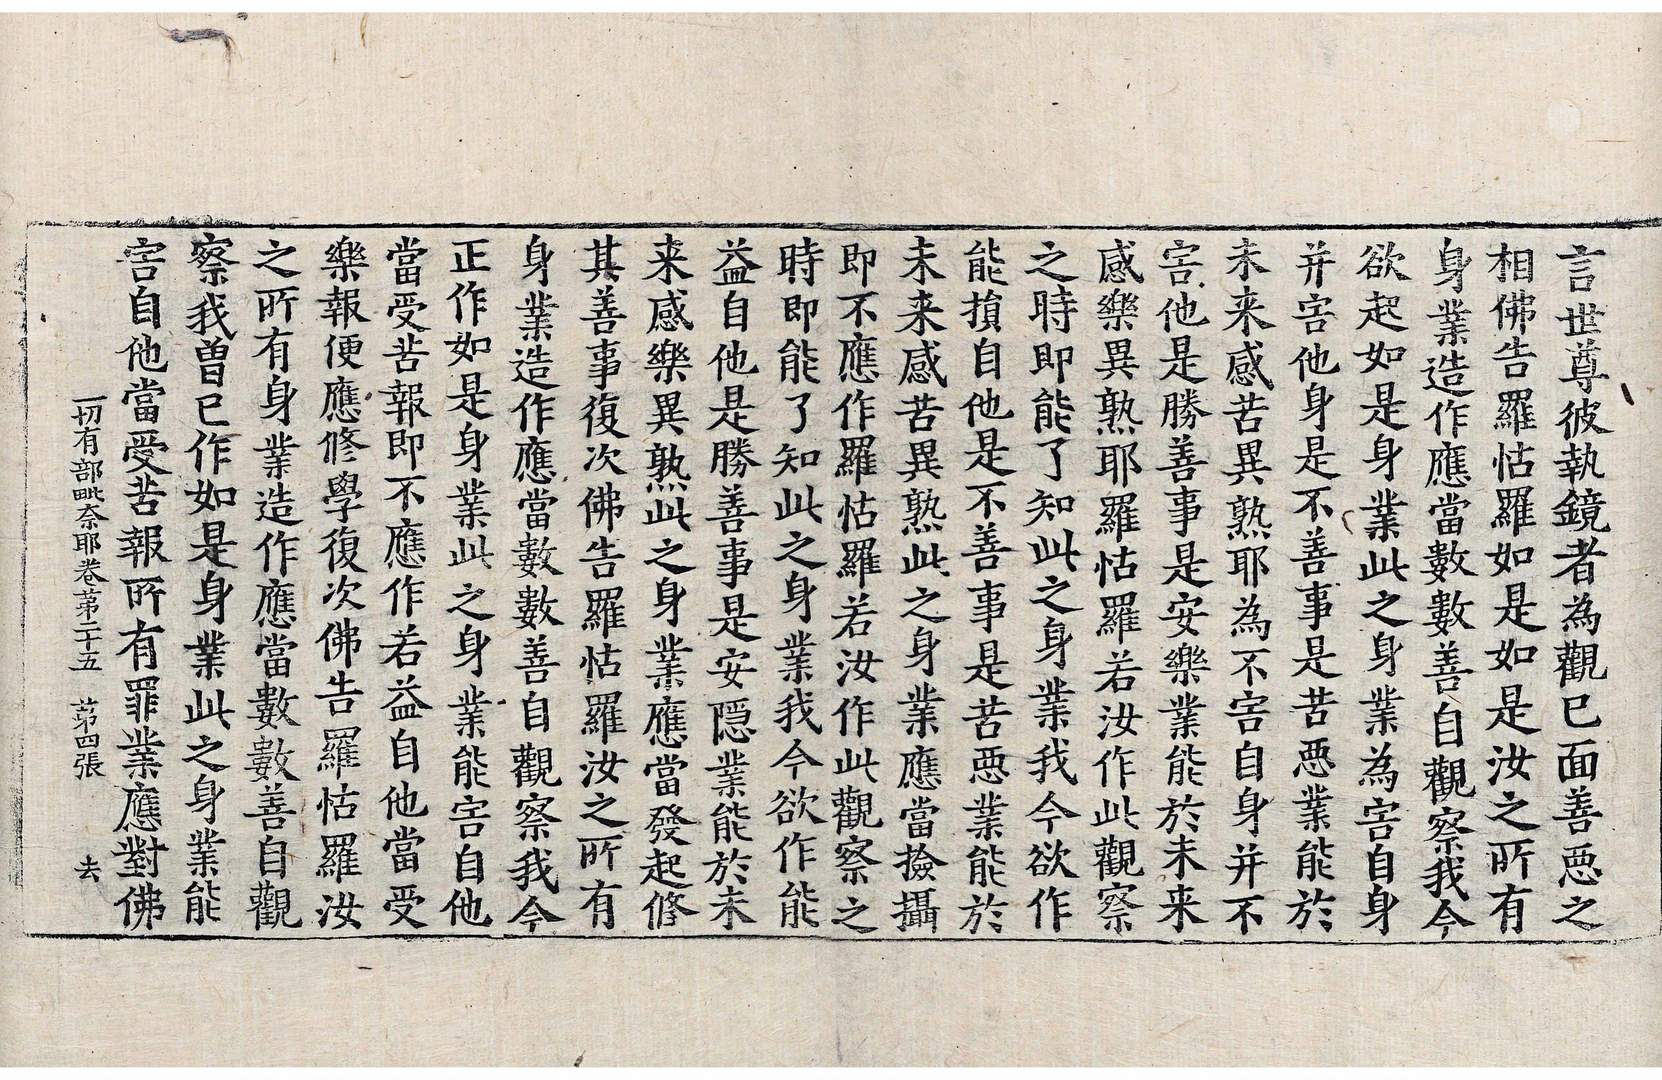 言世尊彼執鏡者為觀已面善惡之
相佛告羅怙羅如是如是汝之所有
身業造作應當數數善自觀察我今
欲起如是身業此之身業為害自身
并害他身是不善事是苦惡業能於
未来感苦異熟耶為不害自身并不
害他是勝善事是安樂業能於未来
感樂異熟耶羅怙羅若汝作此觀察
之時即能了知此之身業我今欲作
能損自他是不善事是苦惡業能於
未来感苦異熟此之身業應當撿攝
即不應作羅怙羅若汝作此觀察之
時即能了知此之身業我今欲作能
益自他是勝善事是安隱業能於未
来感樂異熟此之身業應當發起修
其善事復次佛告羅怙羅汝之所有
身業造作應當數數善自觀察我今
正作如是身業此之身業能害自他
當受苦報即不應作若益自他當受
樂報便應修學復次佛告羅怙羅汝
之所有身業造作應當數數善自觀
察我曽已作如是身業此之身業能
害自他當受苦報所有罪業應對佛
一切有部毗奈耶卷苐二十五 苐四張 去